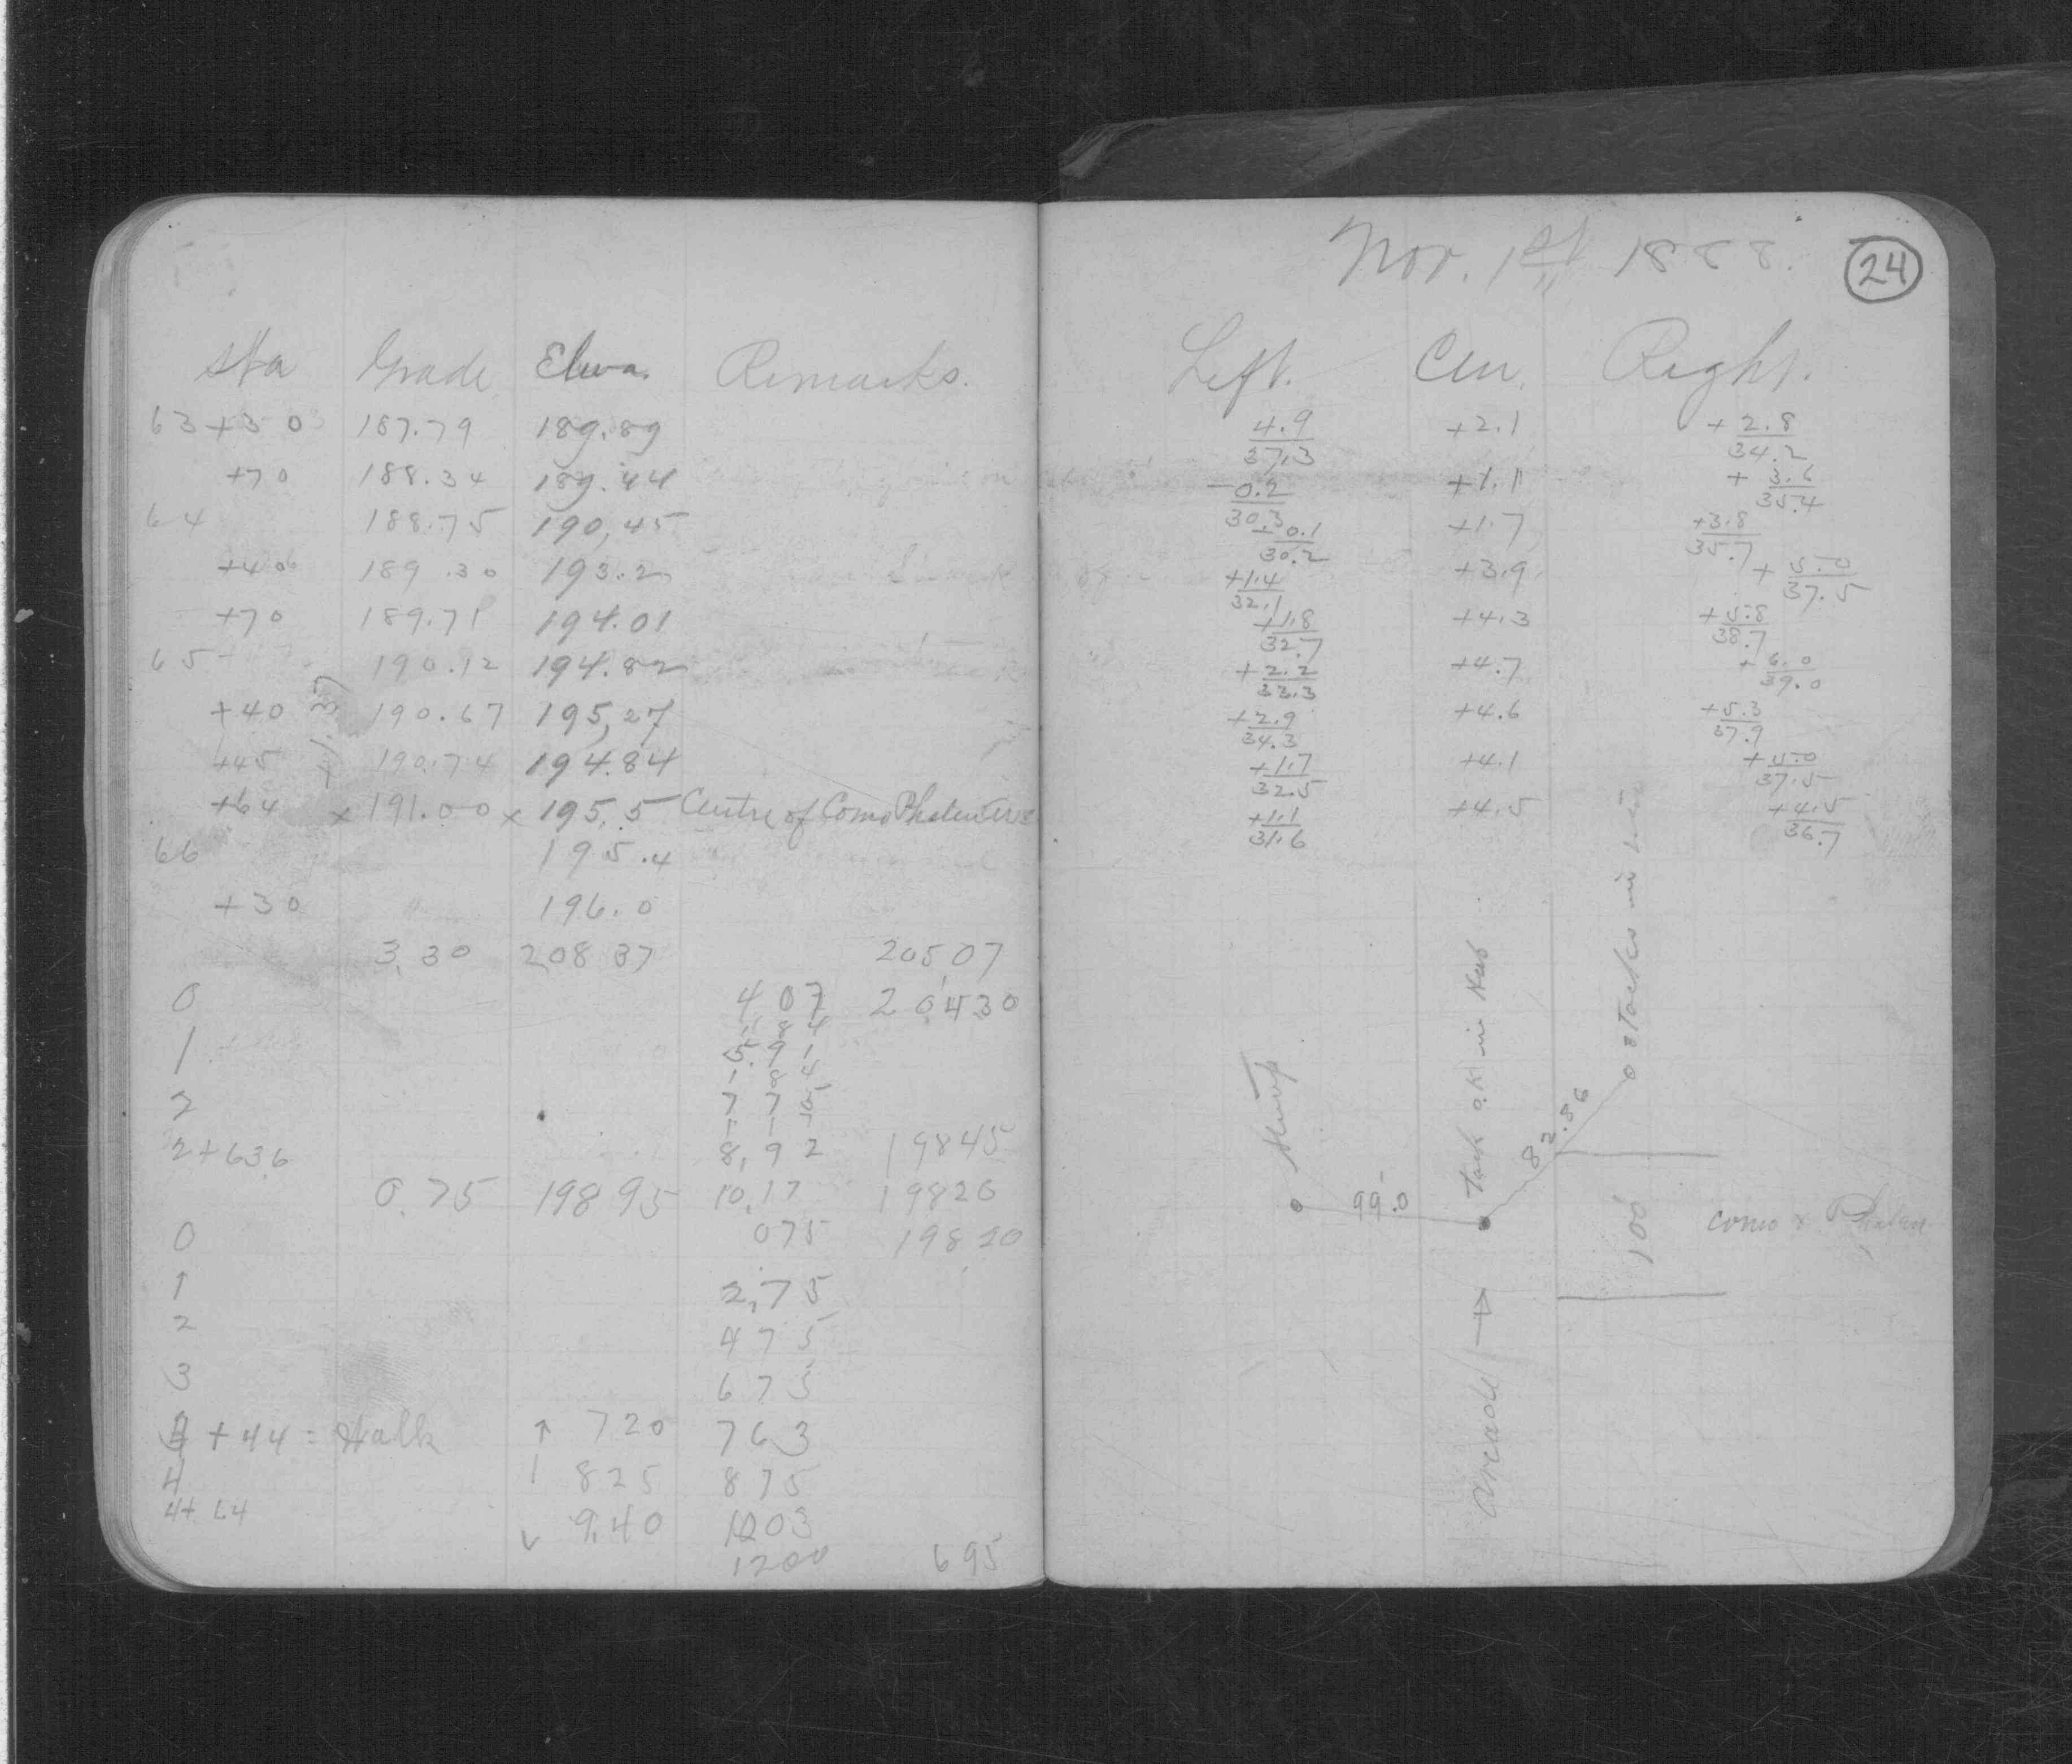 Sta Grade Eleva. Remarks.
63+30 187.79 189.89
+70 188.34 189.44
64 188.75 190,45
+40 189.30 193.2
+70 189.71 194.01
65 190.12 194.82
+40 190.67 195,27
+45 190.74 194.84
+64 x 191.00 x 195.5 Centre of Como Phalen Ave
66 195.4
+30 196.0
3,30 208 37 205,07
0 4 07 204 30
1 5.91
2 7 75
2+636 8,92 19845
0.75 198 95 10,17 19820
0 075 19820
1 2,75
2 475
3 675
+44 = Stalk ↑ 720 763
4 825 875
4+64 9.40 1003
1200 695
Nov. 1st 1888.
24
Left. Cen. Right.
4.9/37.3 +2.1 +2.8/34.2
-0.2/30.3 +1.1 +3.6/35.4
-0.1/30.2 +1.7 +3.8/35.7
+1.4/32.1 +3.9 +5.0/37.5
+1.8/32.7 +4.3 +5.8/38.7
+2.2/33.3 +4.7 +6.0/39.0
+2.9/34.3 +4.6 +5.3/37.9
+1.7/32.5 +4.1 +5.0/37.5
+1.1/31.6 +4.5 +4.5/36.7
Stump
99.0
Tack o.K in Hub
82.86
3 Tacks in
100'
Como & Phalen
Arcade →